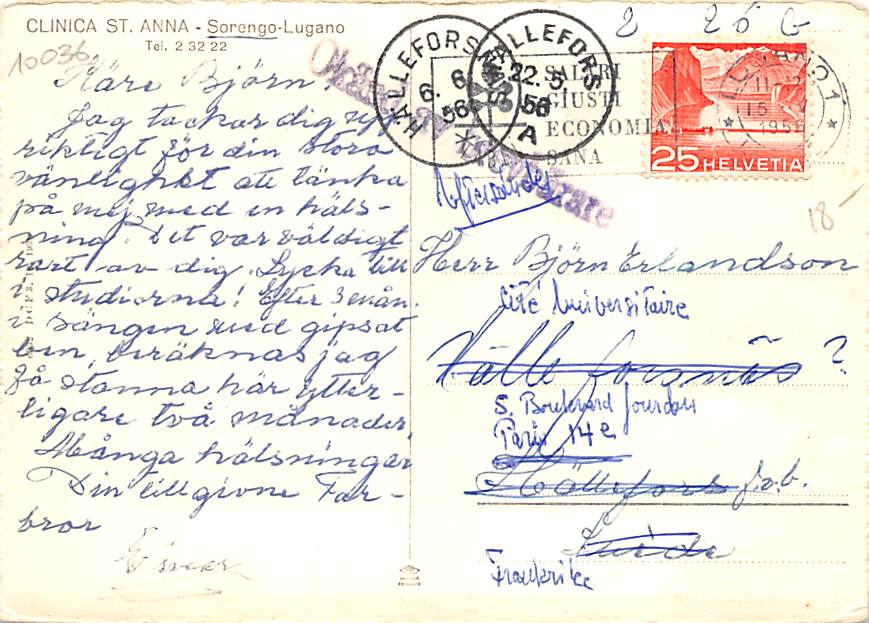 CLINICA ST. ANNA - Sorengo-Lugano
Tel. 2 32 22
10036
Käre Björn!
Jag tackar dig
riktigt för din stora
vänlighet att tänka
på mej med en häls-
ning. Det var väldigt
rart av dig. Lycka till
i studierna! Efter 3 mån.
i sängen med gipsat
ben, beräknas jag
få stanna här ytter-
ligare två månader.
Många hälsningar
Din tillgivne Far-
bror
Einar
2 26 G
HÄLLEFORS
6. 6
56
HÄLLEFORS
22. 5.
56
A
SALARI
GIUSTI
ECONOMIA
SANA
LUGANO 1
1956
25 HELVETIA
Okänd av
brevbärare
18-
Eftersändes
Herr Björn Erlandson
Cité Universitaire
Hälleforsnäs ?
5. Boulevard Jourdan
Paris 14e
Hällefors J.o.b.
Suède
Frankrike